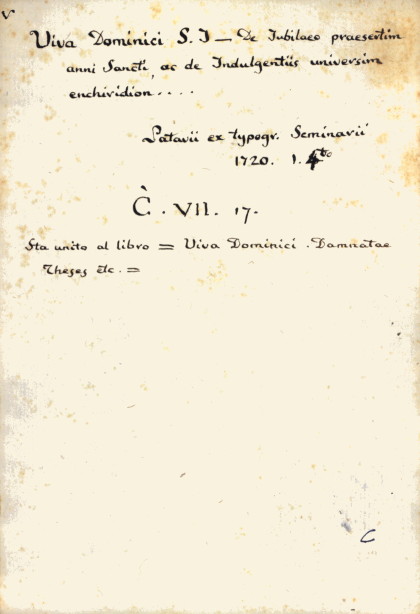 V
Viva Dominici S. J — De Jubilaeo praesertim
anni Sancti, ac de Indulgentiis universim
enchiridion . . . .
Patavii ex typogr. Seminarii
1720. 1. 4to
C. VII. 17.
Sta unito al libro = Viva Dominici . Damnatae
Theses etc. =
C